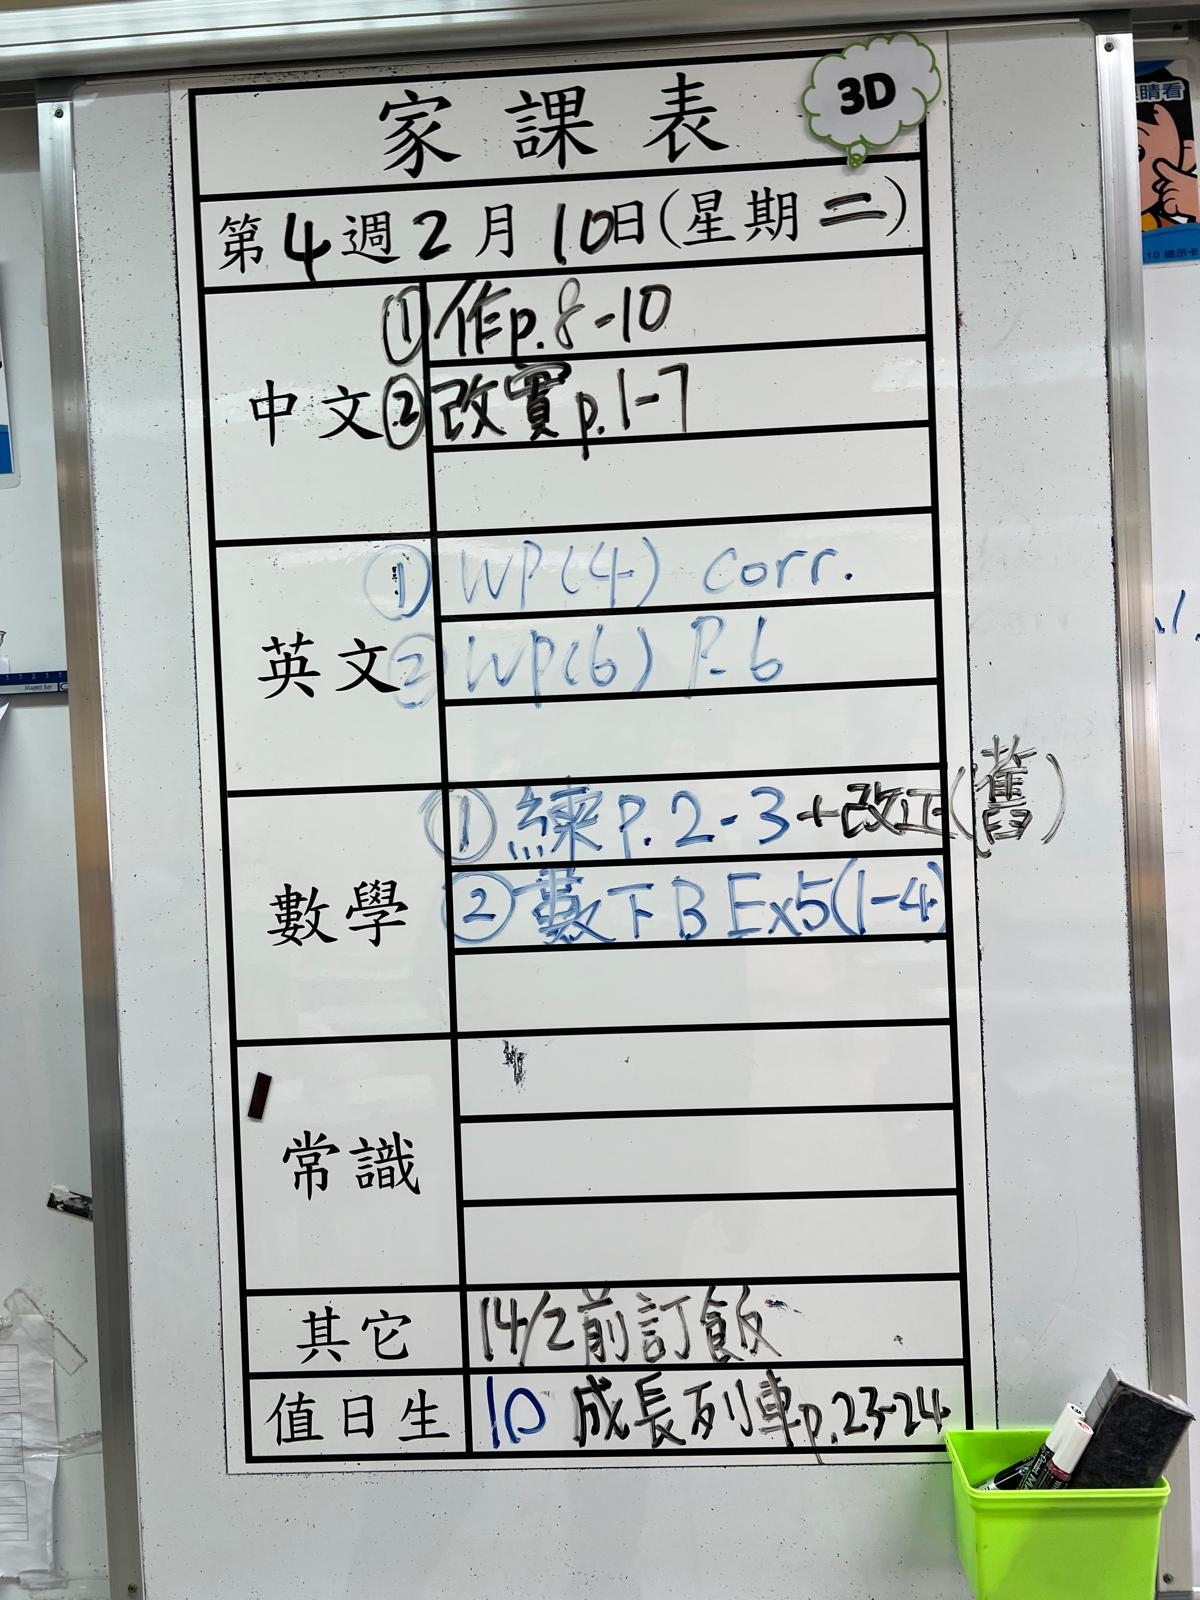 家課表
3D
第4週2月10日(星期二)
中文
①作p.8-10
②改實p.1-7
英文
① WP(4) corr.
② WP(6) P.6
數學
①練P.2-3+改正(舊)
②數下B Ex5(1-4)
常識
其它
14/2前訂飯
值日生
10 成長列車p.23-24
睛看
.10 提示卡